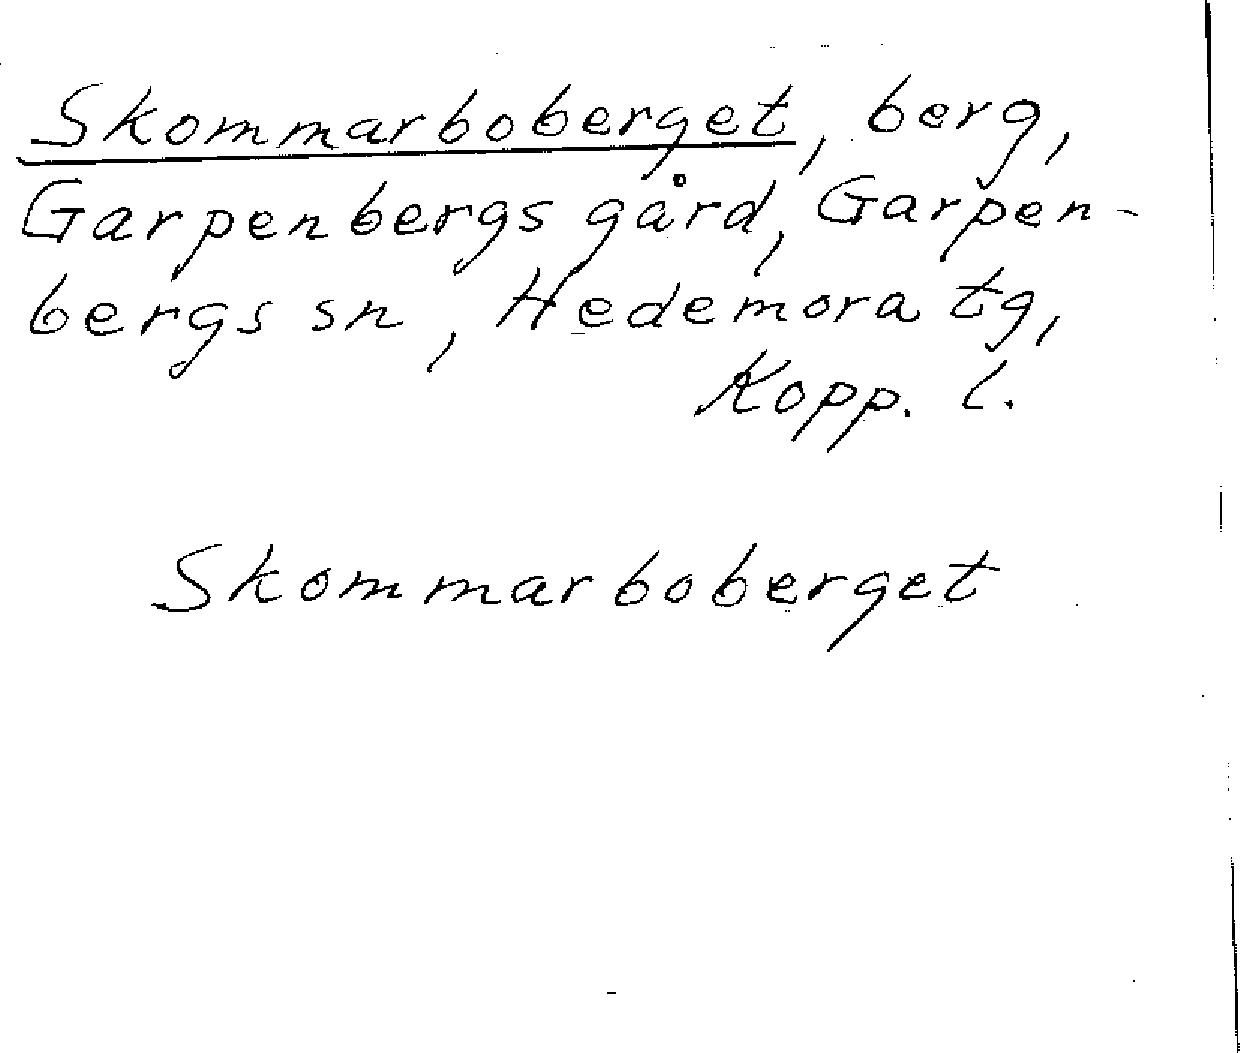 Skommarboberget, berg,
Garpenbergs gård, Garpen-
bergs sn, Hedemora tg,
Kopp. l.
Skommarboberget